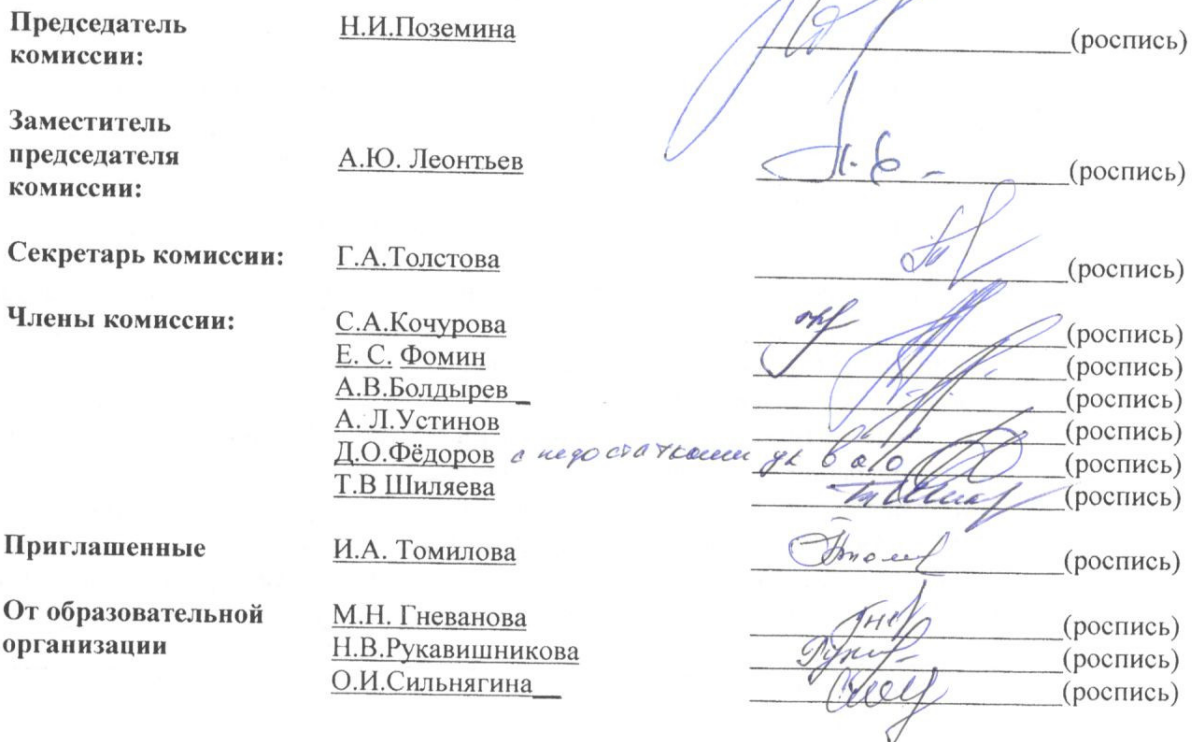 Председатель Н.И.Поземина (роспись)
комиссии:
Заместитель
председателя А.Ю. Леонтьев (роспись)
комиссии:
Секретарь комиссии: Г.А.Толстова (роспись)
Члены комиссии: С.А.Кочурова (роспись)
Е. С. Фомин (роспись)
А.В.Болдырев (роспись)
А. Л.Устинов (роспись)
Д.О.Фёдоров с недостатками (роспись)
Т.В Шиляева (роспись)
Приглашенные И.А. Томилова (роспись)
От образовательной М.Н. Гневанова (роспись)
организации Н.В.Рукавишникова (роспись)
О.И.Сильнягина (роспись)